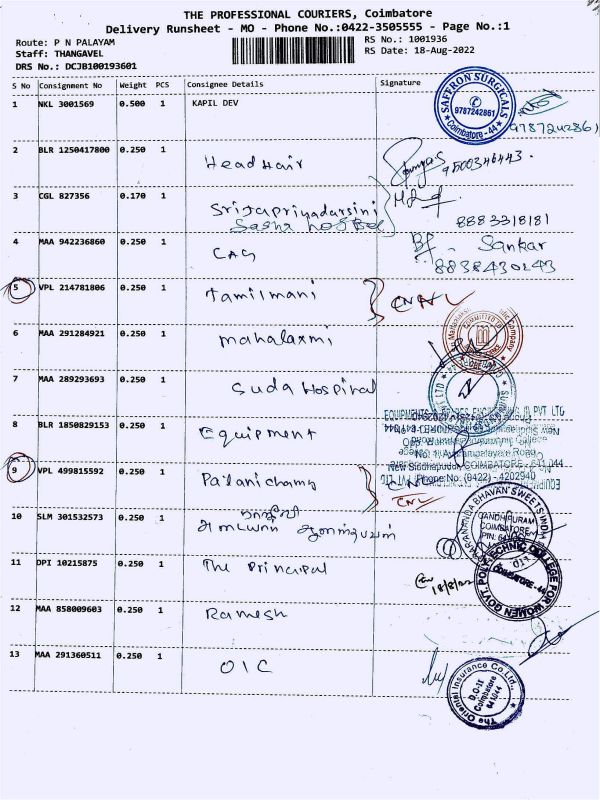 THE PROFESSIONAL COURIERS, Coimbatore
Delivery Runsheet - MO - Phone No.:0422-3505555 - Page No.:1
Route: P N PALAYAM
Staff: THANGAVEL
DRS No.: DCJB100193601
RS No.: 1001936
RS Date: 18-Aug-2022
S No Consignment No Weight PCS Consignee Details Signature
1 NKL 3001569 0.500 1 KAPIL DEV
SAFFRON SURGICALS
9787242861
Coimbatore-44
9787242861
2 BLR 1250417800 0.250 1 Head Hair
9500346443.
3 CGL 827356 0.170 1 Srijapriyadarsini
8883318181
4 MAA 942236860 0.250 1 CAG
Sankar
8838430243
5 VPL 214781806 0.250 1 Tamilmani CNL
6 MAA 291284921 0.250 1 mahalaxmi
7 MAA 289293693 0.250 1 Suda Hospital
8 BLR 1850829153 0.250 1 Equipment
PVT LTD
New Siddhapudur, COIMBATORE - 641 044
Phone No: (0422) - 4202940
9 VPL 499815592 0.250 1 Palanichamy
CNL
10 SLM 301532573 0.250 1
BHAVAN SWEETS
GANDHIPURAM
COIMBATORE
11 DPI 10215875 0.250 1 The Principal
18/8/22
GOVT. POLYTECHNIC COLLEGE FOR WOMEN
COIMBATORE-44
12 MAA 858009603 0.250 1 Ramesh
13 MAA 291360511 0.250 1 OIC
The Oriental Insurance Co.Ltd.,
D.O-II
Coimbatore
641044